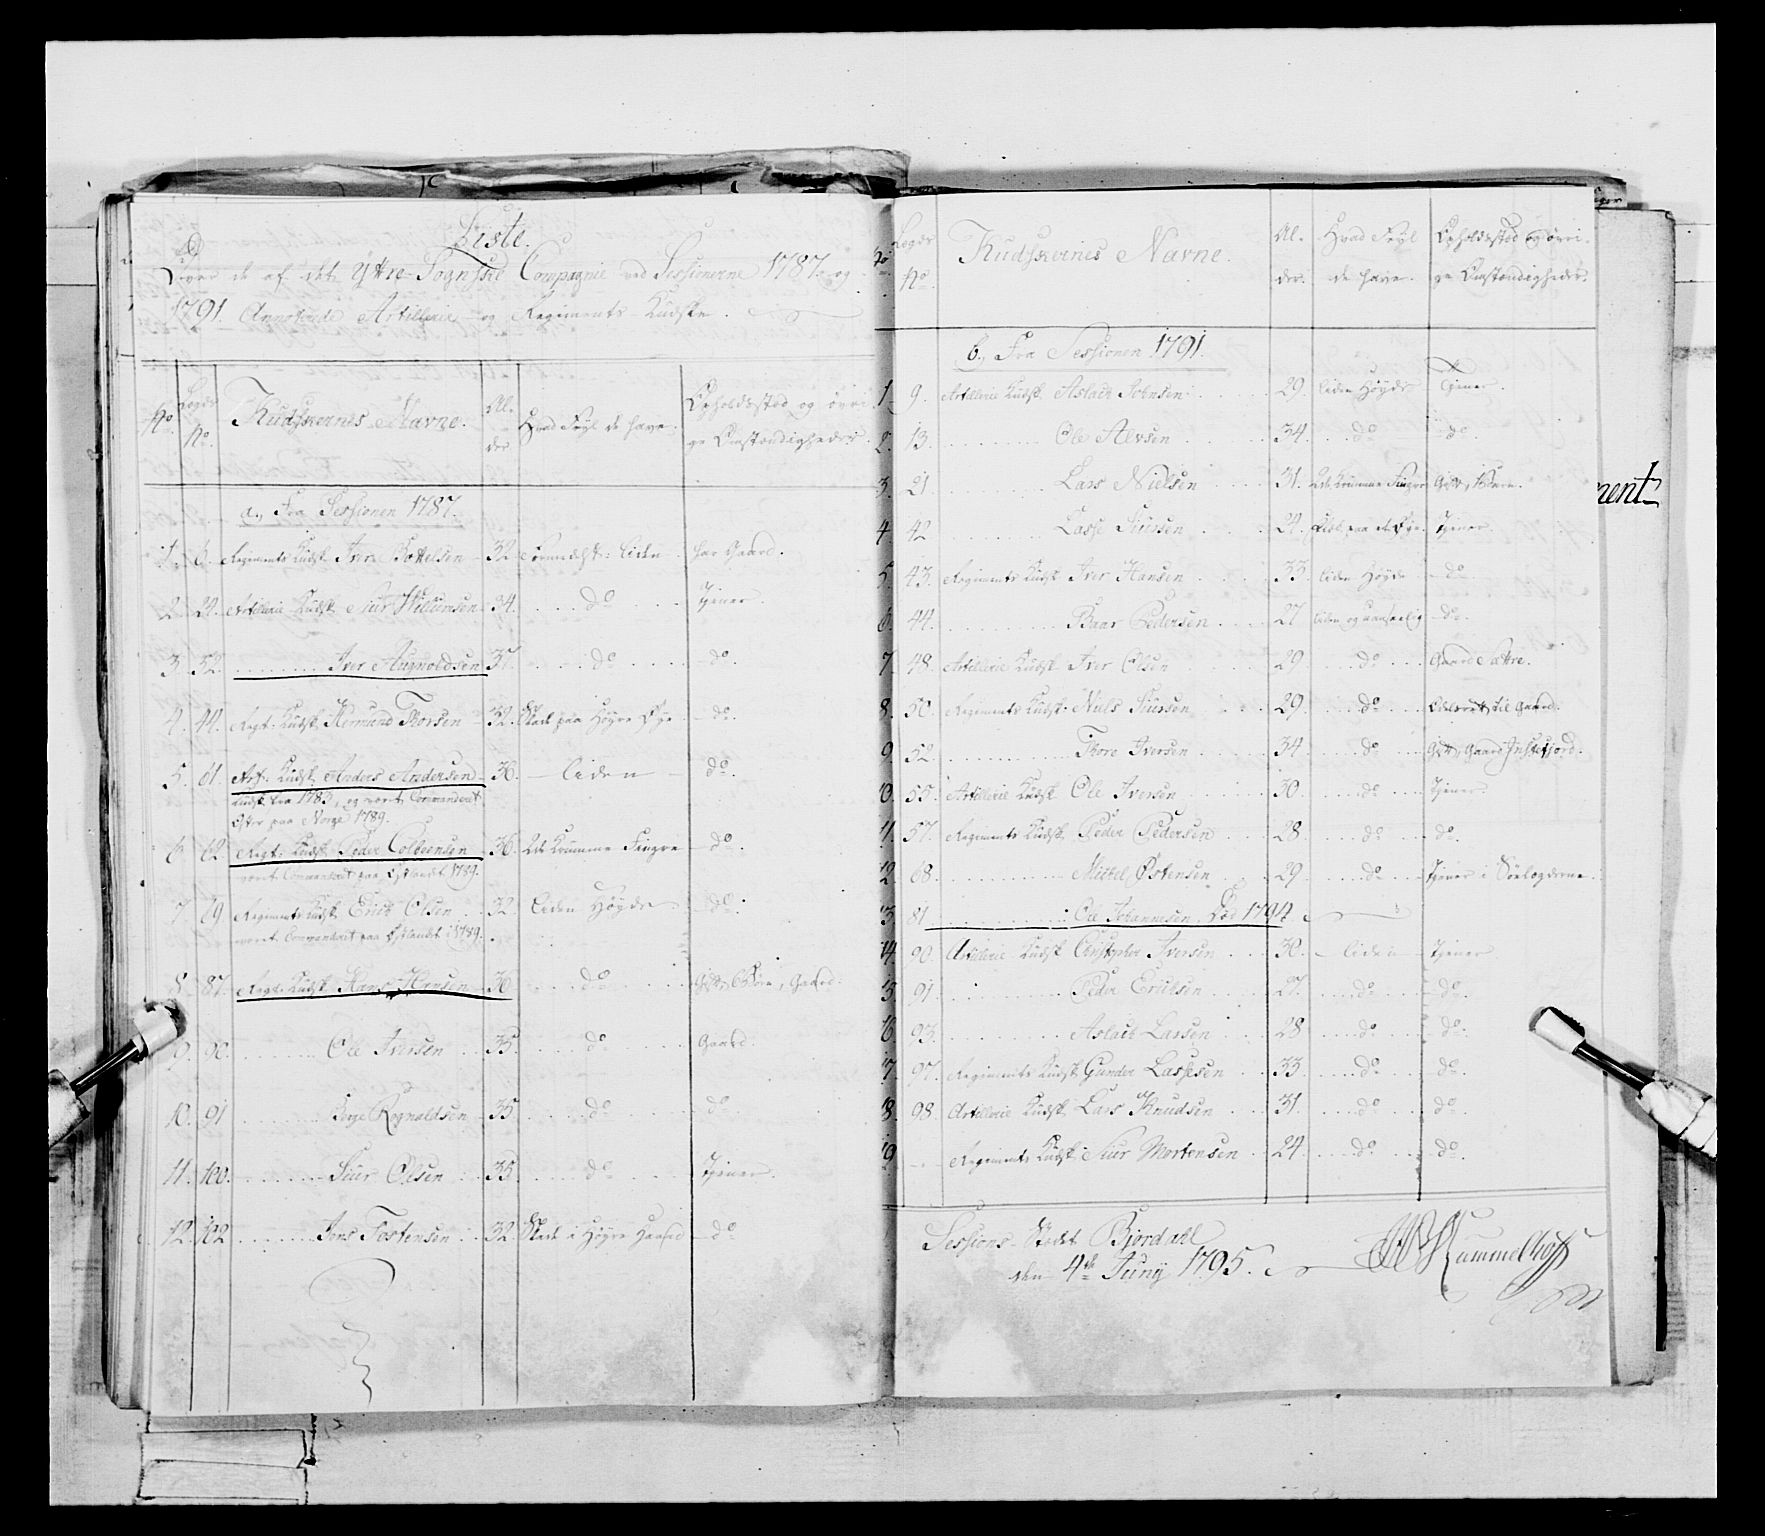 Liste
Over de af det Yttre-Sognske Compagnie ved Sessionerne 1787 og
1791 Annoterede Artillerie- og Regiments-Kudske.
No. Legds No. Kudskernes Navne. Alder Hvad Feyl de have Opholdsstød og øvrige Omstændigheder.
a., Fra Sessionen 1787.
1. 6. Regiments Kudsk Iver Bottelsen 32 liden har Gaard.
2. 24. Artillerie Kudsk Siur Willumsen 34. do Tjener.
3. 52. Iver Augnoldsen 37. do do.
4. 44. Regt: Kudsk Hermund Thorsen 32. Skade paa Høyre Øye do.
5. 61. Art: Kudsk Anders Andersen 36. liden do.
Kudsk fra 1783, og været Commanderet
Øster paa Norge 1789.
6 62. Regt: Kudsk Peder Colbeensen 36. 2de Krumme Fingre do.
været Commanderet paa Østlandet 1789.
7 69 Regiments Kudsk Erick Olsen 32. Liden Høyde do.
været Commanderet paa Østlandet i 1789.
8. 87. Regt. Kudsk Hans Hansen 36 do Gift, 6 Børn, Gaard.
9. 90. Ole Iversen 35. do Gaard.
10. 91 Rognaldsen 35 do do
11. 100. Siur Olsen 35 do Tjener.
12. 102 Jens Tostensen 32 Skade i Høyre Haand do
No Legds No. Kudskernes Navne. Alder. Hvad Feyl de have. Opholdsstød og øvrige Omstændigheder.
b., Fra Sessionen 1791.
1 9. Artillerie Kudsk Aslack Johnsen 29. liden Høyde Tjener.
2. 13. Ole Alvsen 34. do do.
3. 21 Lars Nielsen 31. 2de Krumme Fingre Gift, 1 Barn.
4 42 Lasse Siursen 24. paa et Øye. Tjener.
5. 43. Regiments Kudsk Iver Hansen 33. liden Høyde do
6. 44. Baar Pedersen 27 liden og uanseelig do.
7 48. Artillerie Kudsk Iver Olsen 29 do Gaard Sættre.
8. 50. Regiments Kudsk Niels Siursen 29. do Odelsret til Gaard.
9. 52. Thore Iversen 34 do Gift, Gaard Instefjord.
10. 55. Artillerie Kudsk Ole Iversen 30. do Tjener
11. 57. Regiments Kudsk Peder Pedersen 28 do do.
12. 68. Mickel Østensen 29 do Tjener i Søelegderne.
13. 81 Ole Johannesen, Død 1794
14 90. Artillerie Kudsk Christopher Iversen 30. liden Tjener
15 91. Peder Ericksen 27. do do.
16 93. Aslack Larsen 28 do do.
17. 97. Regiments Kudsk Gunder Lassesen 33 do do.
18. 98. Artillerie Kudsk Lars Knudsen 31. do do.
19 Regiments Kudsk Siur Mortensen 24. do do.
Sessions-Stædet Bjordahl
den 4de Juny 1795.
Hummelhoff
ment